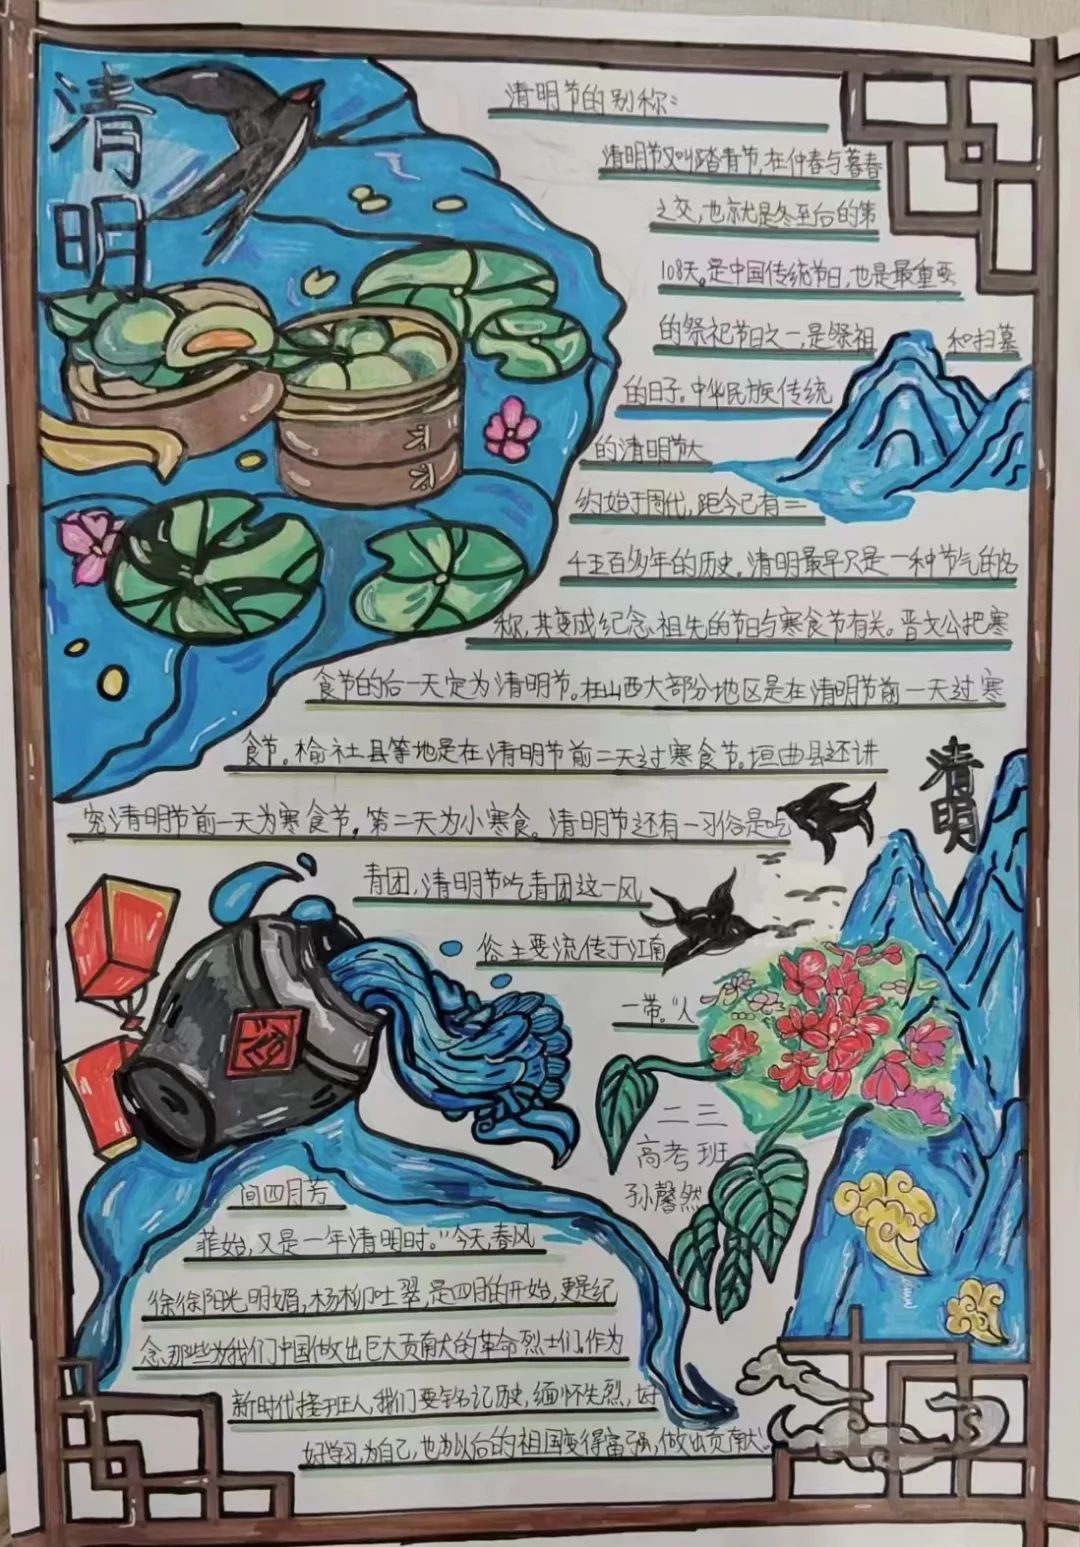 清明
清明节的别称:
清明节又叫踏青节,在仲春与暮春
之交,也就是冬至后的第
108天。是中国传统节日,也是最重要
的祭祀节日之一,是祭祖 和扫墓
的日子。中华民族传统
的清明节大
约始于周代,距今已有二
千五百多年的历史。清明最早只是一种节气的名
称,其变成纪念祖先的节日与寒食节有关。晋文公把寒
食节的后一天定为清明节。在山西大部分地区是在清明节前一天过寒
食节。榆社县等地是在清明节前二天过寒食节。垣曲县还讲
究清明节前一天为寒食节,第二天为小寒食。清明节还有一习俗是吃
青团,清明节吃青团这一风
俗主要流传于江南
一带。“人
清明
二三
高考班
孙馨然
间四月芳
菲始,又是一年清明时。”今天,春风
徐徐阳光明媚,杨柳吐翠,是四月的开始,更是纪
念那些为我们中国做出巨大贡献的革命烈士们。作为
新时代接班人,我们要铭记历史,缅怀先烈,好
好学习,为自己,也为以后的祖国变得富强,做出贡献。